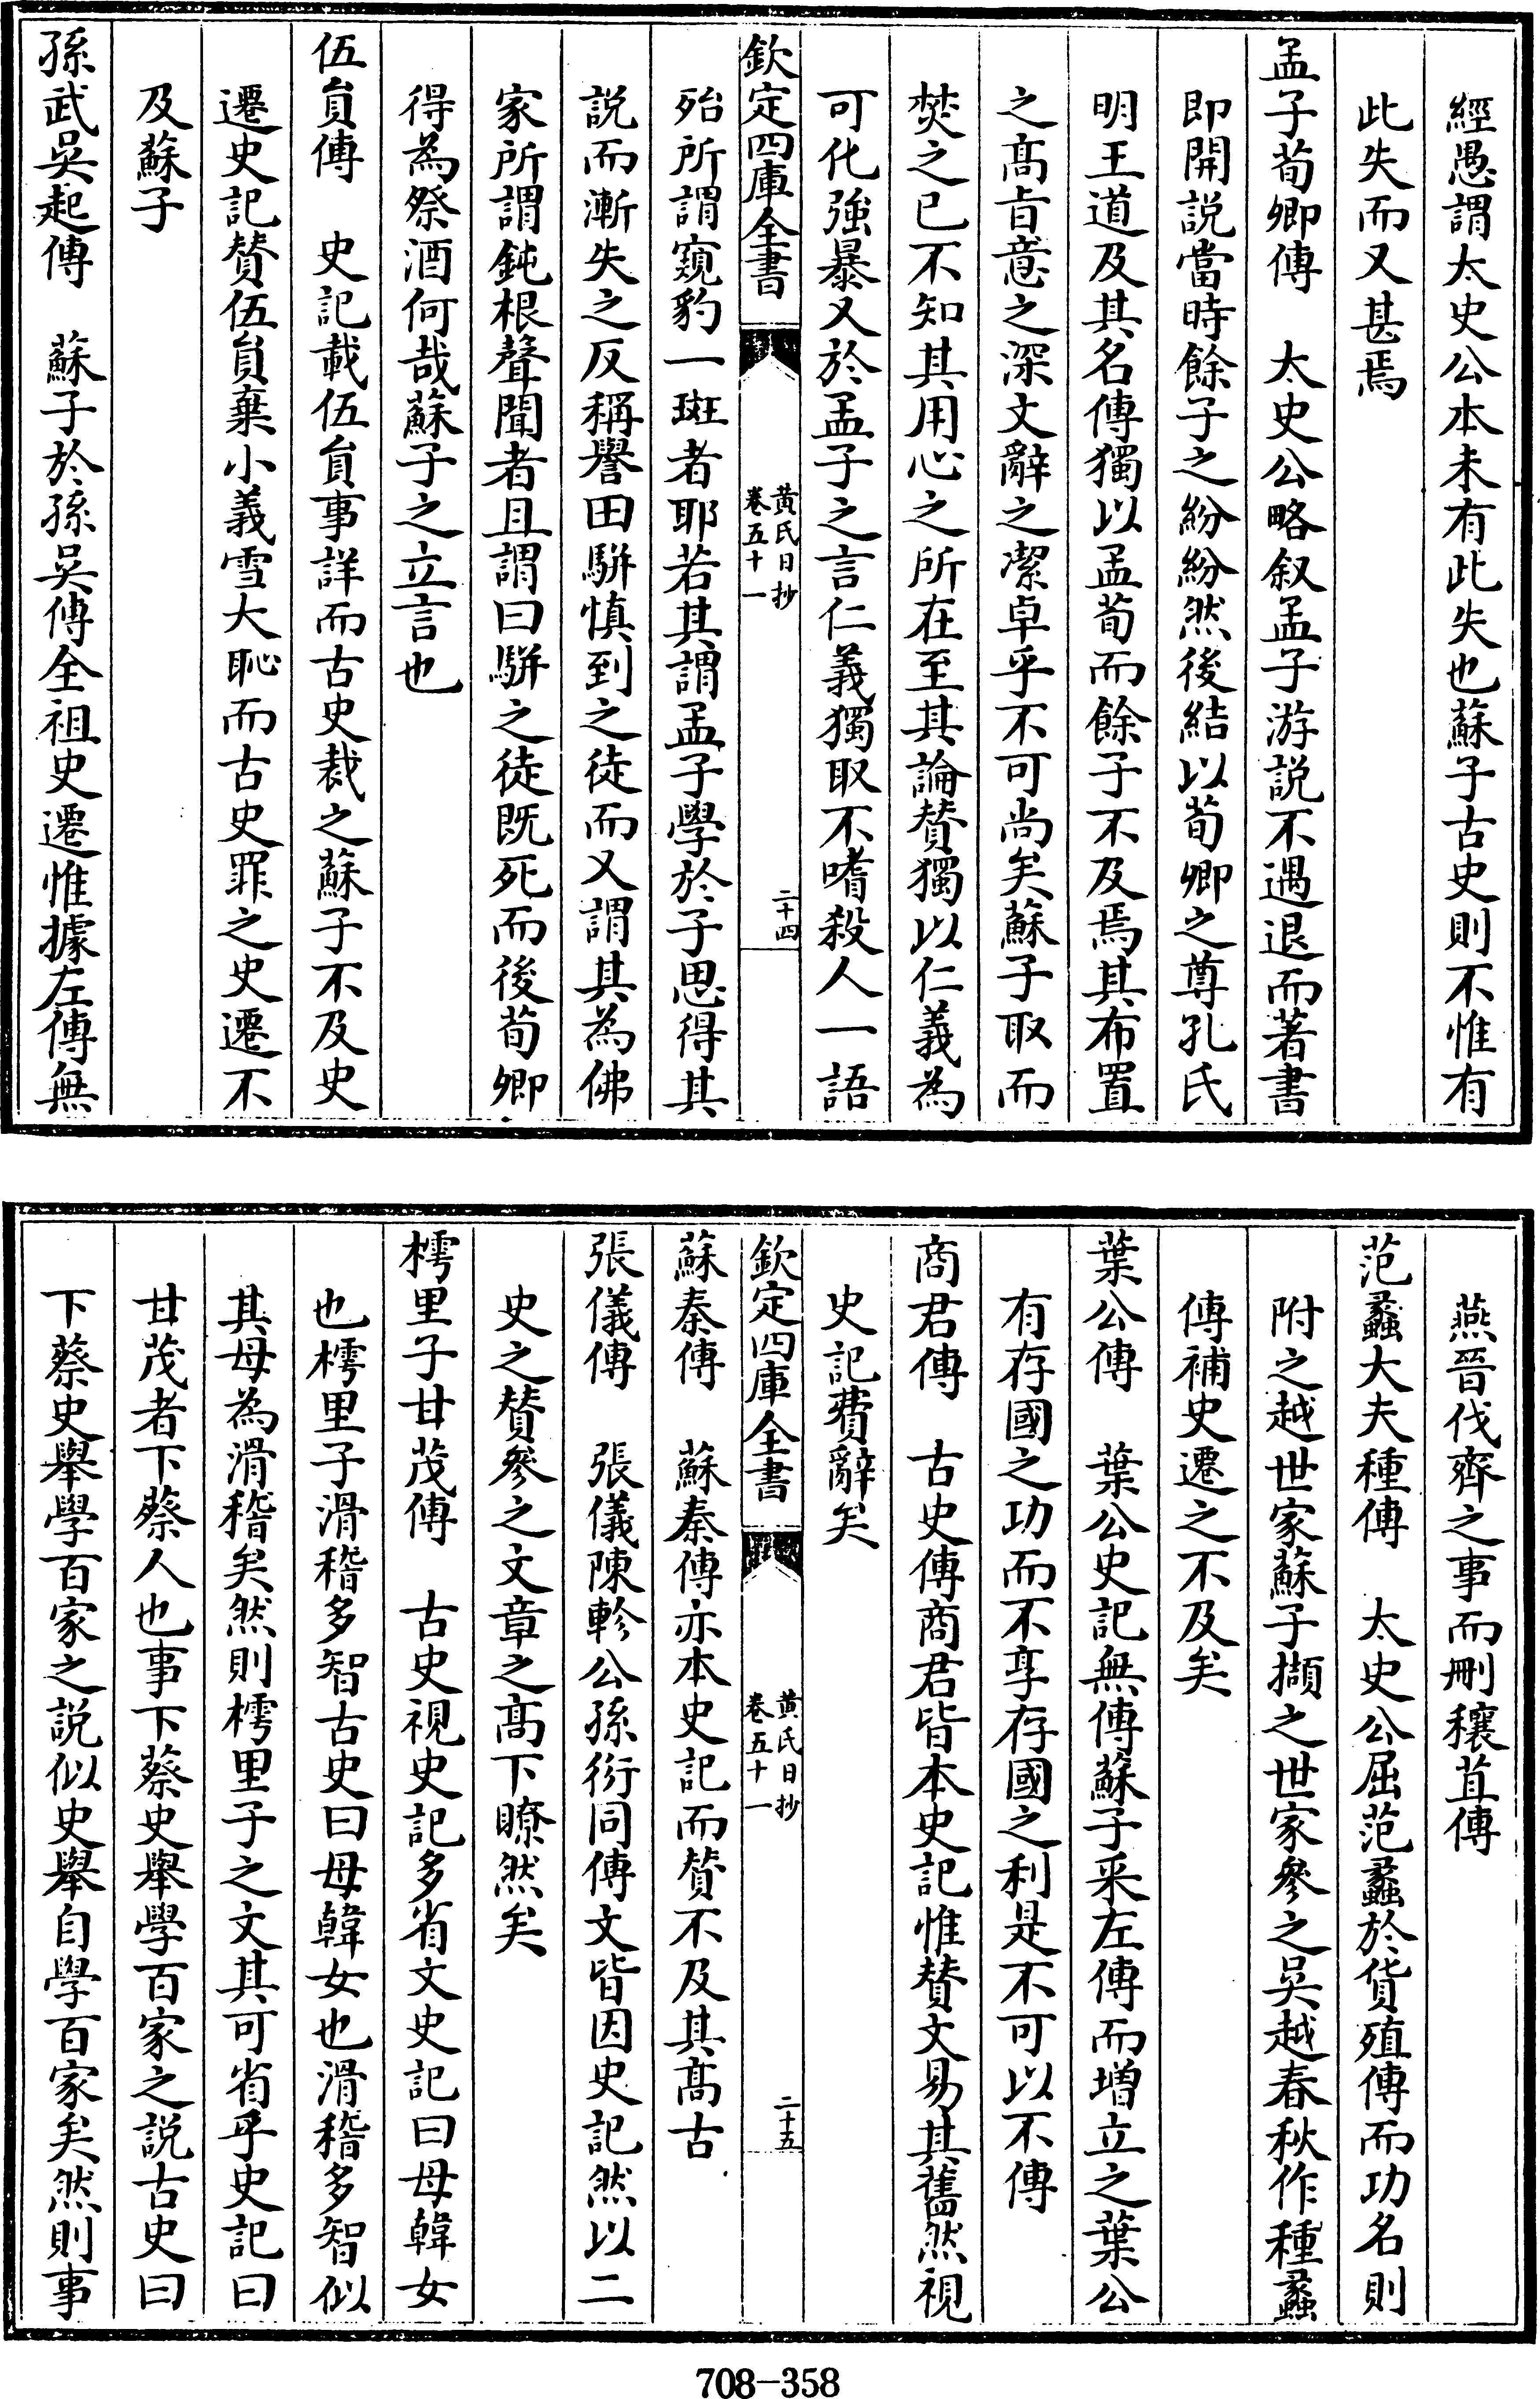 經愚謂太史公本未有此失也蘇子古史則不惟有
此失而又甚焉
孟子荀卿傳　太史公略叙孟子游説不遇退而著書
即開説當時餘子之紛紛然後結以荀卿之尊孔氏
明王道及其名傳獨以孟荀而餘子不及焉其布置
之髙旨意之深文辭之潔卓乎不可尚矣蘇子取而
焚之已不知其用心之所在至其論賛獨以仁義為
可化強暴又於孟子之言仁義獨取不嗜殺人一語
欽定四庫全書　黃氏日抄　卷五十一　二十四
殆所謂窺豹一斑者耶若其謂孟子學於子思得其
説而漸失之反稱譽田駢慎到之徒而又謂其為佛
家所謂鈍根聲聞者且謂曰駢之徒既死而後荀卿
得為祭酒何哉蘇子之立言也
伍員傳　史記載伍員事詳而古史裁之蘇子不及史
遷史記賛伍員棄小義雪大恥而古史罪之史遷不
及蘇子
孫武吳起傳　蘇子於孫吳傳全祖史遷惟據左傳無
燕晉伐齊之事而刪穰苴傳
范蠡大夫種傳　太史公屈范蠡於貨殖傳而功名則
附之越世家蘇子擷之世家參之吳越春秋作種蠡
傳補史遷之不及矣
葉公傳　葉公史記無傳蘇子采左傳而增立之葉公
有存國之功而不享存國之利是不可以不傳
商君傳　古史傳商君皆本史記惟賛文易其舊然視
史記費辭矣
欽定四庫全書　黃氏日抄　卷五十一　二十五
蘇秦傳　蘇秦傳亦本史記而賛不及其髙古
張儀傳　張儀陳軫公孫衍同傳文皆因史記然以二
史之賛參之文章之髙下瞭然矣
樗里子甘茂傳　古史視史記多省文史記曰母韓女
也樗里子滑稽多智古史曰母韓女也滑稽多智似
其母為滑稽矣然則樗里子之文其可省乎史記曰
甘茂者下蔡人也事下蔡史舉學百家之説古史曰
下蔡史舉學百家之説似史舉自學百家矣然則事
708-358